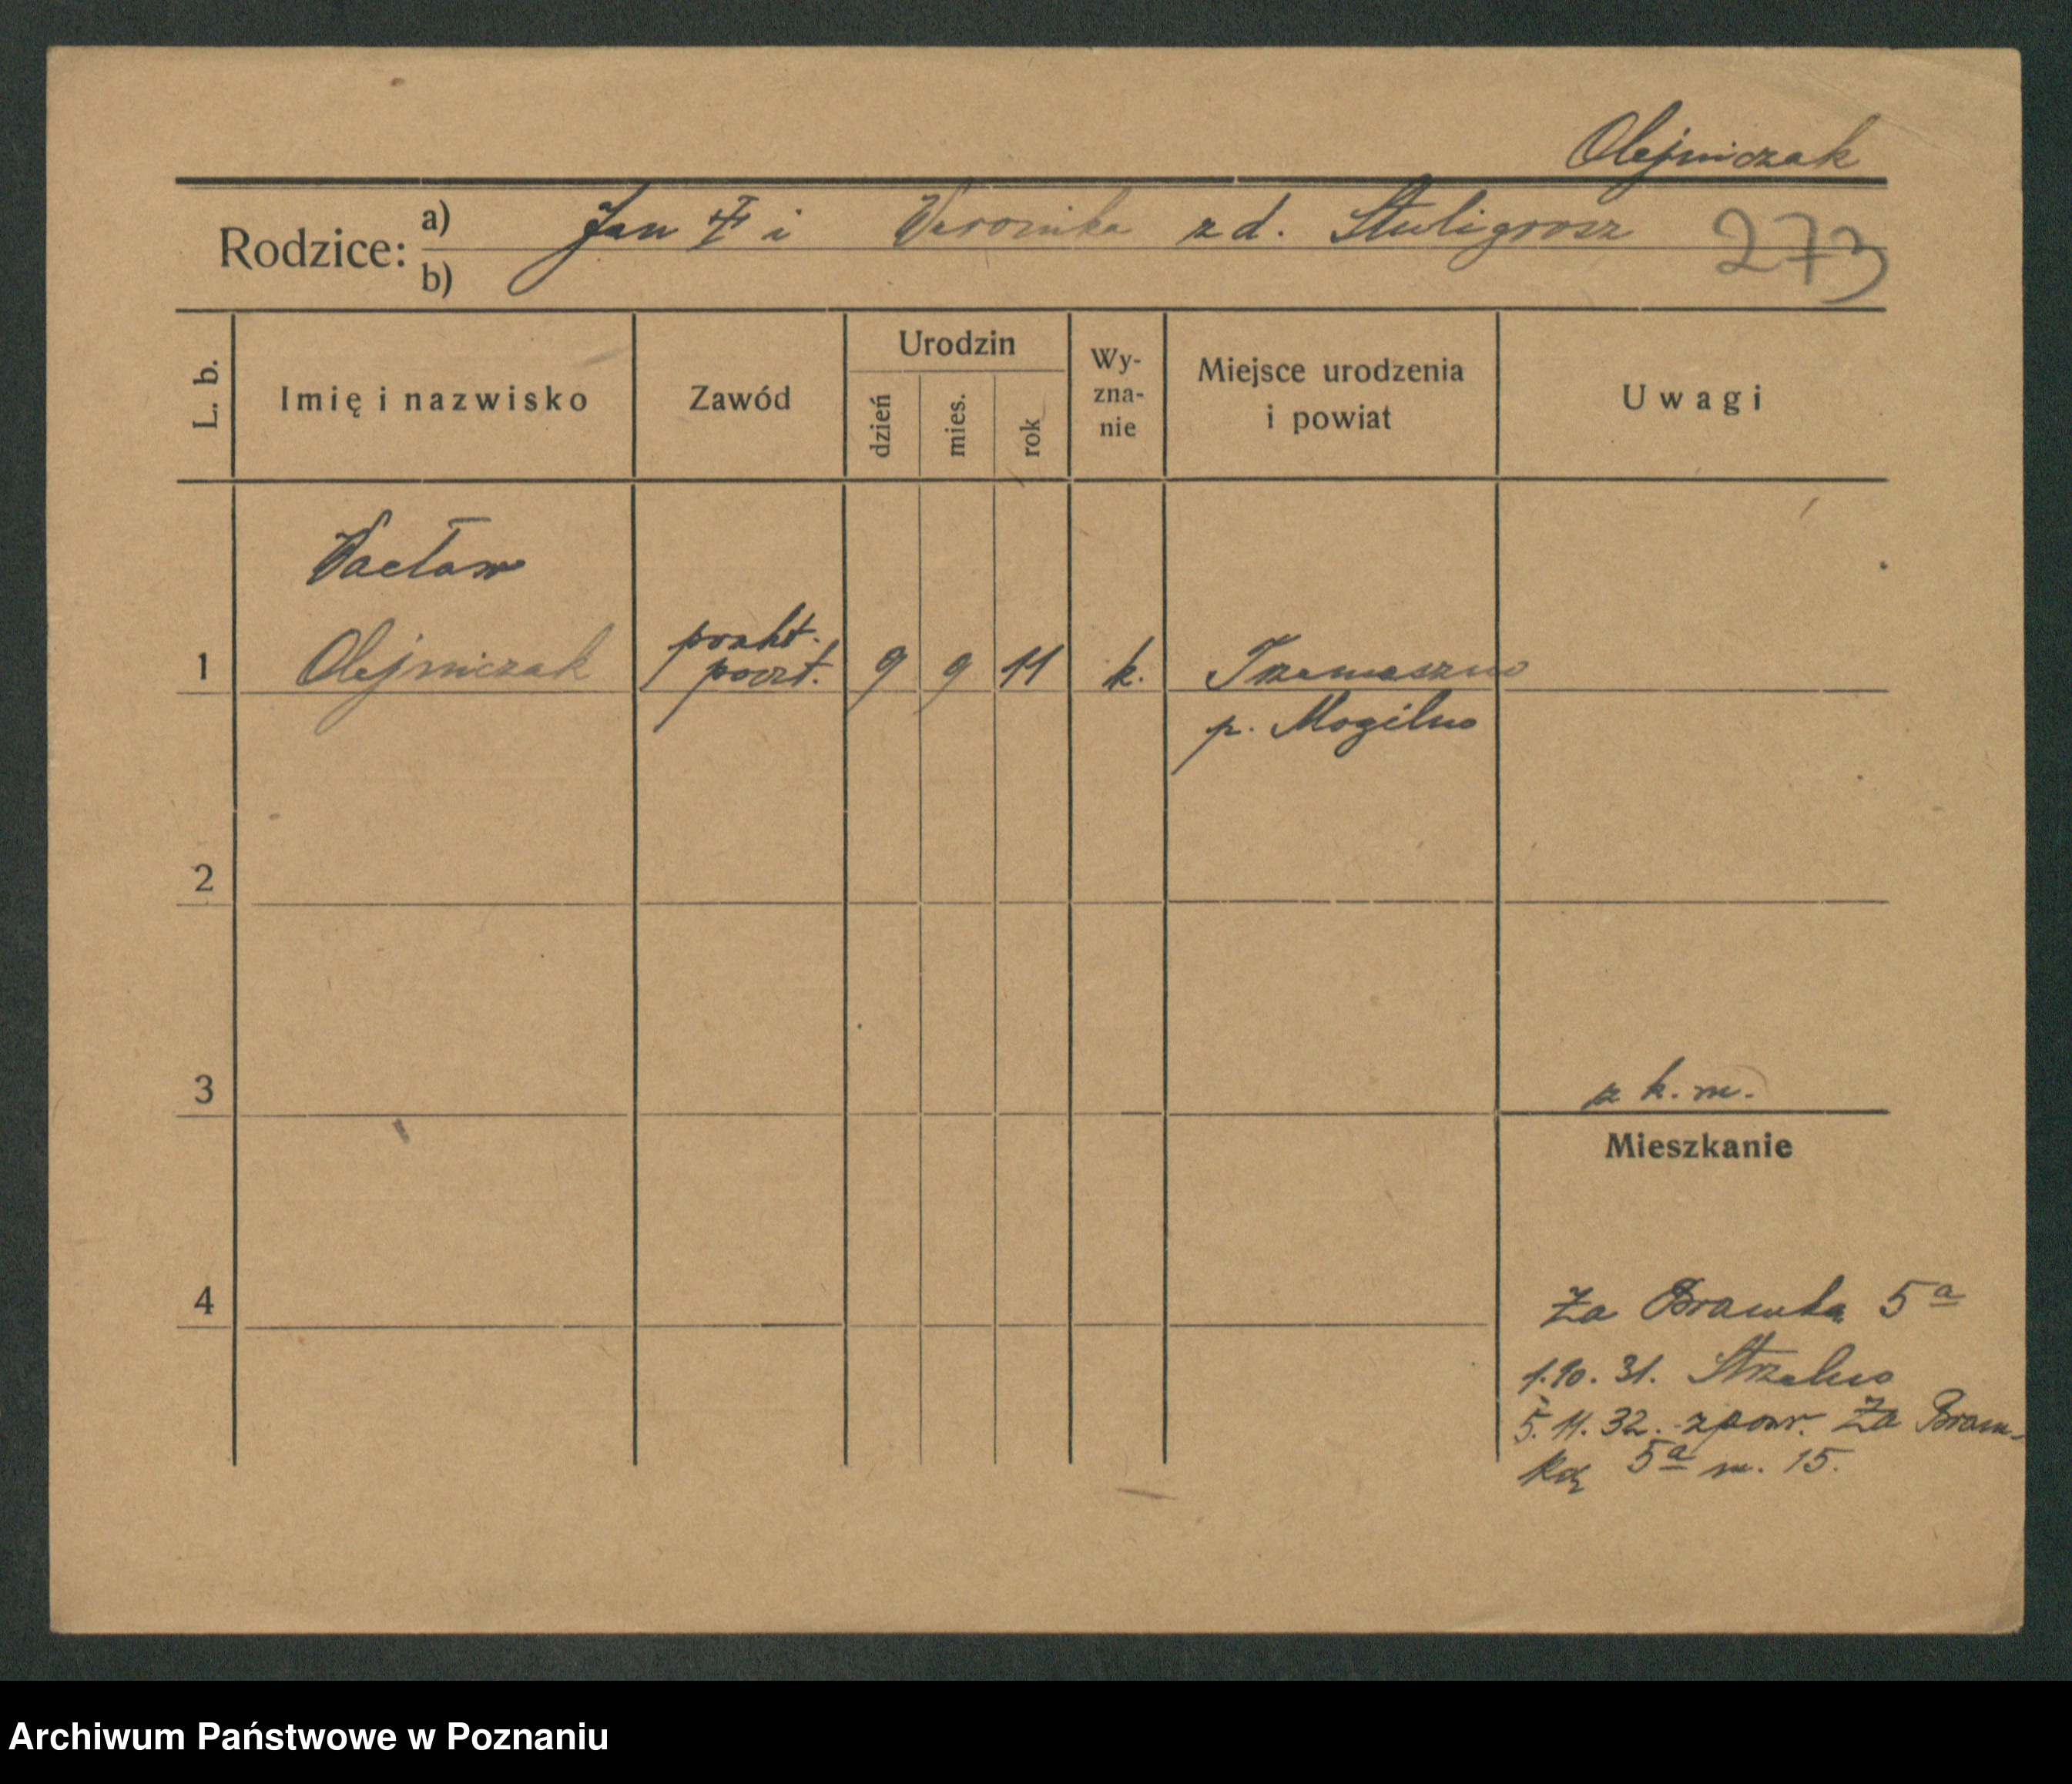 Olejniczak
Rodzice: a) Jan † i Weronika z d. Stuligrosz
b)
273
L. b. Imię i nazwisko Zawód Urodzin dzień mies. rok Wy-zna-nie Miejsce urodzenia i powiat Uwagi
Wacław
1 Olejniczak prakt. poczt. 9 9 11 k. Trzemeszno
p. Mogilno
2
3 z k. m.
Mieszkanie
4 Za Bramką 5a
1.10.31. Strzelno
5.11.32. zpow. Za Bram-
ką 5a m. 15.
Archiwum Państwowe w Poznaniu